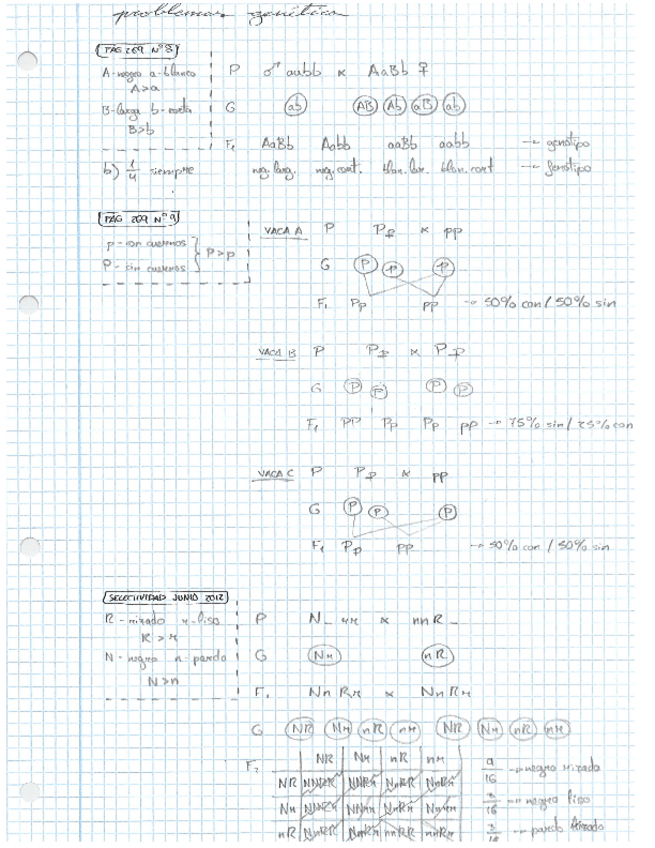 problemas genética
PÁG 209 Nº 8
A-negro a-blanco
A>a
B-larga b-corta
B>b
b) 1/4 siempre
P ♂ aabb x AaBb ♀
G ab AB Ab aB ab
F1 AaBb Aabb aaBb aabb → genotipo
neg. larg. neg. cort. blan. lar. blan. cort → fenotipo
PÁG 209 Nº 9
p - con cuernos
P - sin cuernos
P>p
VACA A P Pp x pp
G P p p
F1 Pp pp → 50% con / 50% sin
VACA B P Pp x Pp
G P p P p
F1 PP Pp Pp pp → 75% sin / 25% con
VACA C P Pp x pp
G P p p
F1 Pp pp → 50% con / 50% sin
SELECTIVIDAD JUNIO 2012
R - rizado r - liso
R > r
N - negro n - pardo
N>n
P N_ rr x nnR_
G Nr nR
F1 NnRr x NnRr
G NR Nr nR nr NR Nr nR nr
F2 NR Nr nR nr
NR NNRR NNRr NnRR NnRr
Nr NNRr NNrr NnRr Nnrr
nR NnRR NnRr nnRR nnRr
9/16 → negro rizado
3/16 → negro liso
3/16 → pardo rizado